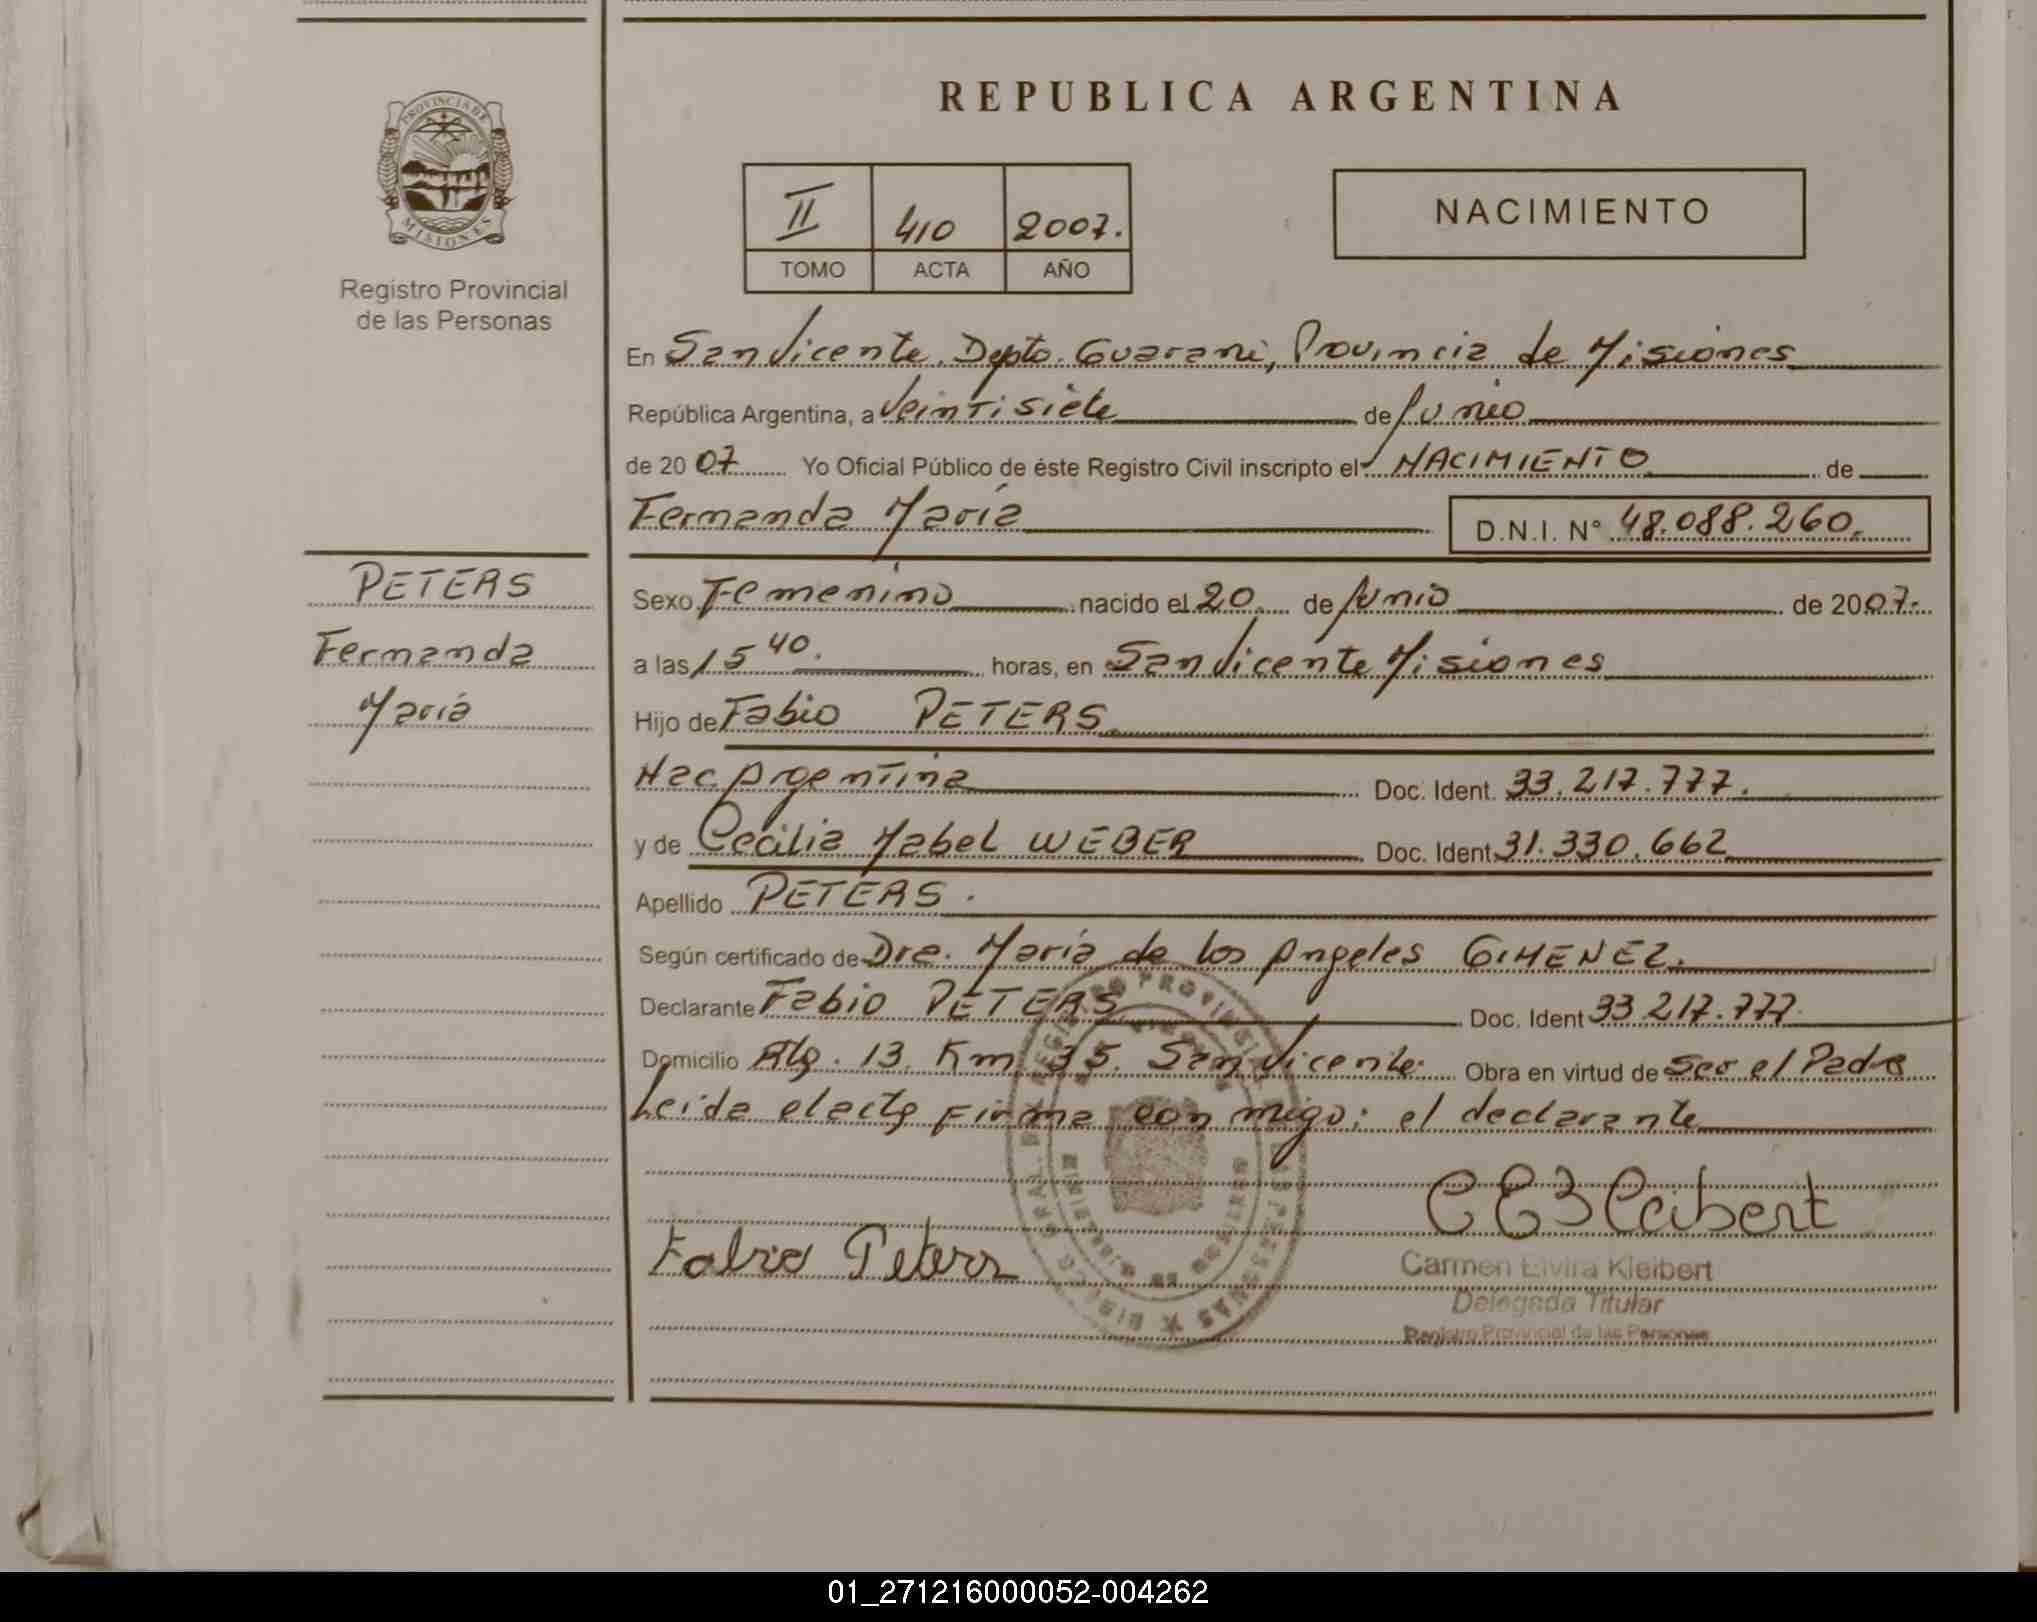 REPUBLICA ARGENTINA
PROVINCIA DE
MISIONES
Registro Provincial
de las Personas
II 410 2007.
TOMO ACTA AÑO
NACIMIENTO
En San Vicente. Depto. Guarani, Provincia de Misiones
República Argentina, a Veintisiete de Junio
de 2007 Yo Oficial Público de éste Registro Civil inscripto el NACIMIENTO de
Fernanda María D.N.I. N° 48.088.260.
PETERS
Fernanda
María
Sexo Femenino nacido el 20 de Junio de 2007.
a las 15 40. horas, en San Vicente Misiones
Hijo de Fabio PETERS
Nac. Argentina Doc. Ident. 33.217.777.
y de Cecilia Mabel WEBER Doc. Ident. 31.330.662
Apellido PETERS.
Según certificado de Dra. María de los Angeles GIMENEZ.
Declarante Fabio PETERS Doc. Ident 33 217.777.
Domicilio Alg. 13. Km 35. San Vicente. Obra en virtud de Ser el Padre
Leida el acta firma con migo: el declarante
Fabio Peters
Carmen Elvira Kleibert
Delegada Titular
Registro Provincial de las Personas
01_271216000052-004262